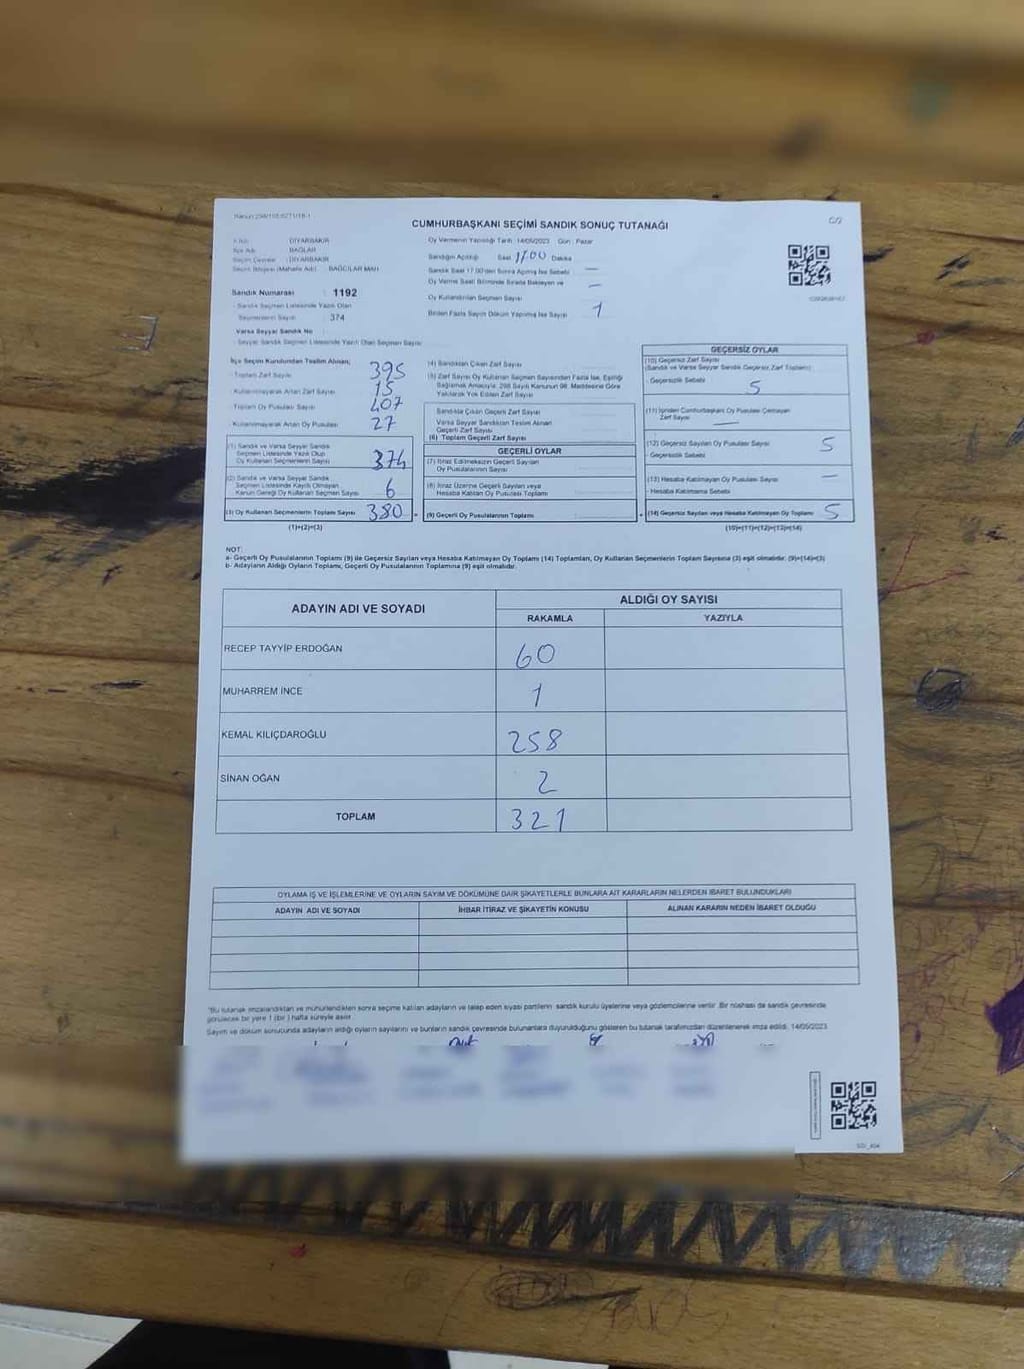 CUMHURBAŞKANI SEÇİMİ SANDIK SONUÇ TUTANAĞI
C/2
DİYARBAKIR
BAĞLAR
DİYARBAKIR
BAĞCILAR MAH.
Sandık Numarası : 1192
Sandık Seçmen Listesinde Yazılı Olan
Seçmenlerin Sayısı : 374
Varsa Seyyar Sandık No
Seyyar Sandık Seçmen Listesinde Yazılı Olan Seçmen Sayısı
Oy Vermenin Yapıldığı Tarih : 14/05/2023 Gün : Pazar
Sandığın Açıldığı Saat 17.00 Dakika
Sandık Saat 17.00'den Sonra Açılmış İse Sebebi —
Oy Verme Saati Bitiminde Sırada Bekleyen ve —
Oy Kullandırılan Seçmen Sayısı
Birden Fazla Sayım Döküm Yapılmış İse Sayısı 1
İlçe Seçim Kurulundan Teslim Alınan;
- Toplam Zarf Sayısı 395
- Kullanılmayarak Artan Zarf Sayısı 15
- Toplam Oy Pusulası Sayısı 407
- Kullanılmayarak Artan Oy Pusulası 27
(1) Sandık ve Varsa Seyyar Sandık
Seçmen Listesinde Yazılı Olup
Oy Kullanan Seçmenlerin Sayısı 374
(2) Sandık ve Varsa Seyyar Sandık
Seçmen Listesinde Kayıtlı Olmayan
Kanun Gereği Oy Kullanan Seçmen Sayısı 6
(3) Oy Kullanan Seçmenlerin Toplam Sayısı 380
(1)+(2)=(3)
(4) Sandıktan Çıkan Zarf Sayısı
(5) Zarf Sayısı Oy Kullanan Seçmen Sayısından Fazla İse, Eşitliği
Sağlamak Amacıyla, 298 Sayılı Kanunun 98. Maddesine Göre
Yakılarak Yok Edilen Zarf Sayısı
Sandıkta Çıkan Geçerli Zarf Sayısı
Varsa Seyyar Sandıktan Teslim Alınan
Geçerli Zarf Sayısı
(6) Toplam Geçerli Zarf Sayısı
GEÇERLİ OYLAR
(7) İtiraz Edilmeksizin Geçerli Sayılan
Oy Pusulalarının Sayısı
(8) İtiraz Üzerine Geçerli Sayılan veya
Hesaba Katılan Oy Pusulası Toplamı
(9) Geçerli Oy Pusulalarının Toplamı
GEÇERSİZ OYLAR
(10) Geçersiz Zarf Sayısı
(Sandık ve Varsa Seyyar Sandık Geçersiz Zarf Toplamı)
- Geçersizlik Sebebi 5
(11) İçinden Cumhurbaşkanı Oy Pusulası Çıkmayan
Zarf Sayısı —
(12) Geçersiz Sayılan Oy Pusulası Sayısı 5
- Geçersizlik Sebebi
(13) Hesaba Katılmayan Oy Pusulası Sayısı —
- Hesaba Katılmama Sebebi
(14) Geçersiz Sayılan veya Hesaba Katılmayan Oy Toplamı 5
(10)+(11)+(12)+(13)=(14)
NOT:
a- Geçerli Oy Pusulalarının Toplamı (9) ile Geçersiz Sayılan veya Hesaba Katılmayan Oy Toplamı (14) Toplamları, Oy Kullanan Seçmenlerin Toplam Sayısına (3) eşit olmalıdır. (9)+(14)=(3)
b- Adayların Aldığı Oyların Toplamı, Geçerli Oy Pusulalarının Toplamına (9) eşit olmalıdır.
ADAYIN ADI VE SOYADI
ALDIĞI OY SAYISI
RAKAMLA YAZIYLA
RECEP TAYYİP ERDOĞAN 60
MUHARREM İNCE 1
KEMAL KILIÇDAROĞLU 258
SİNAN OĞAN 2
TOPLAM 321
OYLAMA İŞ VE İŞLEMLERİNE VE OYLARIN SAYIM VE DÖKÜMÜNE DAİR ŞİKAYETLERLE BUNLARA AİT KARARLARIN NELERDEN İBARET BULUNDUKLARI
ADAYIN ADI VE SOYADI İHBAR İTİRAZ VE ŞİKAYETİN KONUSU ALINAN KARARIN NEDEN İBARET OLDUĞU
*Bu tutanak imzalandıktan ve mühürlendikten sonra seçime katılan adayların ve talep eden siyasi partilerin sandık kurulu üyelerine veya gözlemcilerine verilir. Bir nüshası da sandık çevresinde
görülecek bir yere 1 (bir) hafta süreyle asılır.
Sayım ve döküm sonucunda adayların aldığı oyların sayılarını ve bunların sandık çevresinde bulunanlara duyurulduğunu gösteren bu tutanak tarafımızdan düzenlenerek imza edildi. 14/05/2023